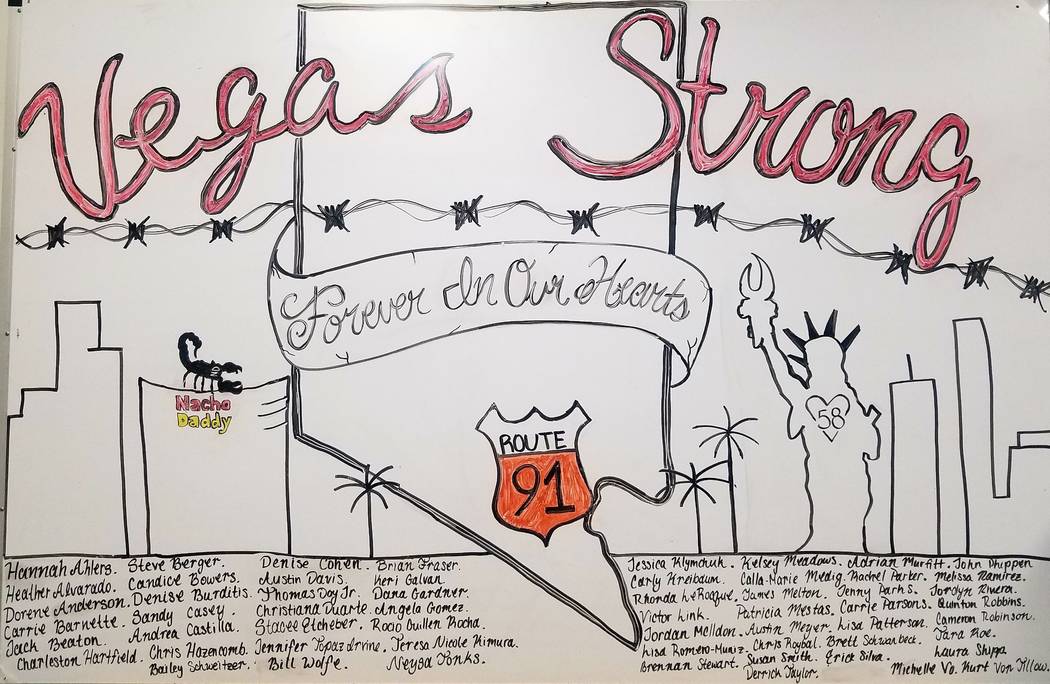 Vegas Strong
Forever In Our Hearts
Nacho
Daddy
58
ROUTE
91
Hannah Ahlers. Steve Berger.
Heather Alvarado. Candice Bowers.
Dorene Anderson. Denise Burditis.
Carrie Barnette. Sandy Casey.
Jack Beaton. Andrea Castilla.
Charleston Hartfield. Chris Hazencomb.
Bailey Schweitzer.
Denise Cohen. Brian Fraser.
Austin Davis. Keri Galvan
Thomas Day Jr. Dana Gardner.
Christiana Duarte. Angela Gomez.
Stacee Etcheber. Rocio Guillen Rocha.
Jennifer Topaz Irvine. Teresa Nicole Kimura.
Bill Wolfe. Neysa Tonks.
Jessica Klymchuk. Kelsey Meadows. Adrian Murfitt. John Phippen
Carly Kreibaum. Calla-Marie Medig. Rachel Parker. Melissa Ramirez.
Rhonda LeRocque. James Melton. Jenny Parks. Jordyn Rivera.
Victor Link. Patricia Mestas. Carrie Parsons. Quinton Robbins.
Jordan McIldon. Austin Meyer. Lisa Patterson. Cameron Robinson.
Lisa Romero-Muniz. Chris Roybal. Brett Schwanbeck. Tara Roe.
Brennan Stewart. Susan Smith. Erick Silva. Laura Shipp
Derrick Taylor. Michelle Vo. Kurt Von Tillow.